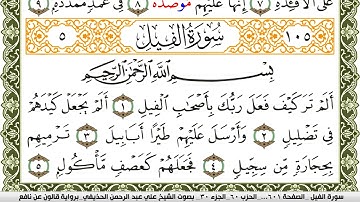 عَلَى الْأَفْـِٔدَةِ ٧ إِنَّهَا عَلَيْهِم مُّوصَدَةٌ ٨ فِي عَمَدٍ مُّمَدَّدَةٍ ٩
١٠٥ سُورَةُ الْفِيلِ ٥
بِسْمِ اللَّهِ الرَّحْمَٰنِ الرَّحِيمِ
أَلَمْ تَرَ كَيْفَ فَعَلَ رَبُّكَ بِأَصْحَابِ الْفِيلِ ١ أَلَمْ يَجْعَلْ كَيْدَهُمْ
فِي تَضْلِيلٍ ٢ وَأَرْسَلَ عَلَيْهِمْ طَيْرًا أَبَابِيلَ ٣ تَرْمِيهِم
بِحِجَارَةٍ مِّن سِجِّيلٍ ٤ فَجَعَلَهُمْ كَعَصْفٍ مَّأْكُولٍ
سورة الفيل الصفحة ٦٠١... الحزب ٦٠ الجزء ٣٠ بصوت الشيخ علي عبد الرحمن الحذيفي برواية قالون عن نافع